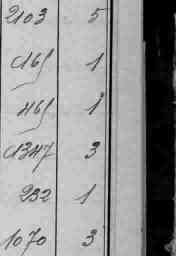 2103 5
165 1
465 1
1347 3
232 1
1070 3